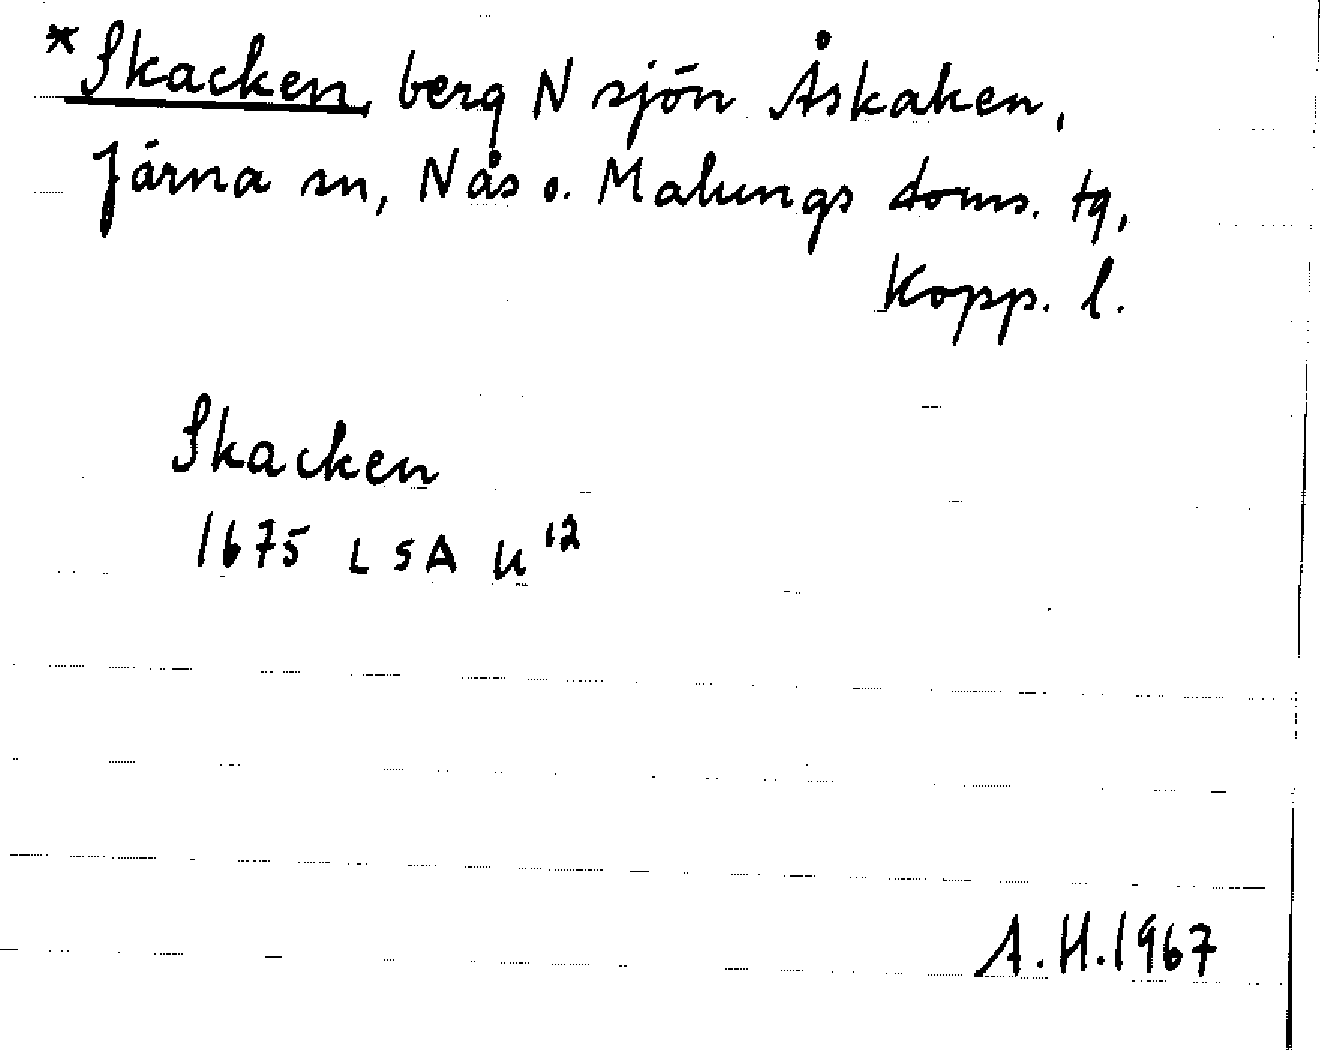 *Skacken, berg N sjön Åskaken,
Järna sn, Nås o. Malungs doms. tg,
Kopp. l.
Skacken
1675 LSA U¹²
A.H.1967